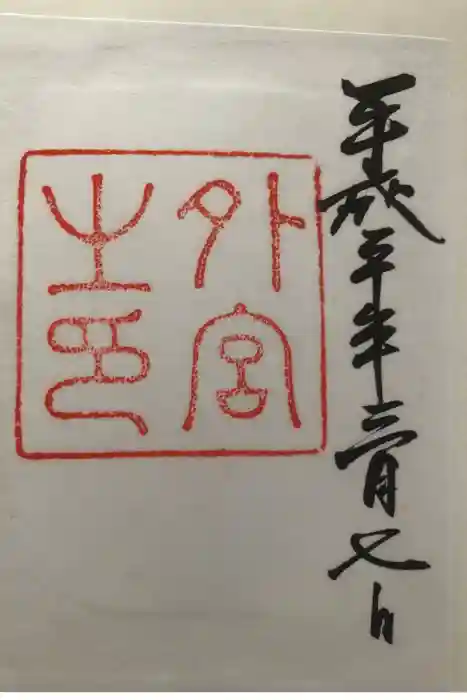 平成年三月七日
外宮
之印